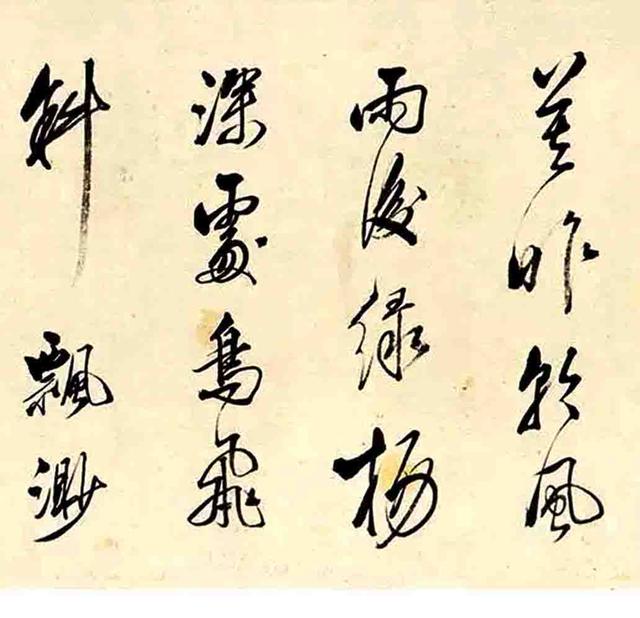 差昨朝風
雨後綠楊
深處鳥飛
斜飄渺